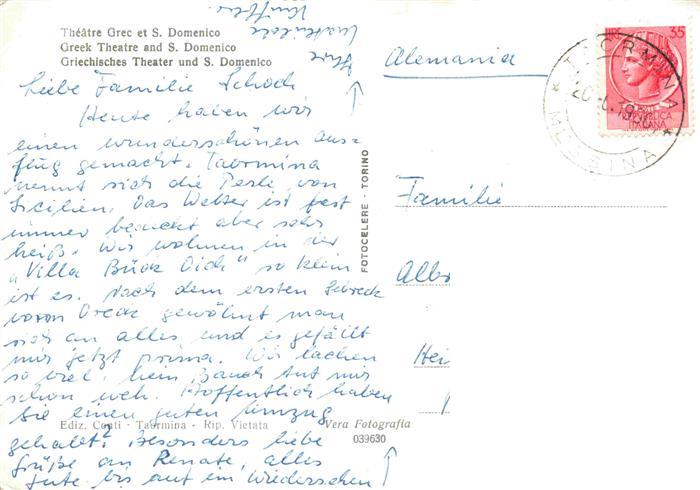 Théâtre Grec et S. Domenico
Greek Theatre and S. Domenico
Griechisches Theater und S. Domenico
Liebe Familie Schoch
Heute haben wir
einen wunderschönen Aus-
flug gemacht. Taormina
nennt sich die Perle von
Sicilien. Das Wetter ist fast
immer aber sehr
heiß. Wir wohnen in der
„Villa Bück Dich" so klein
ist es. Nach dem ersten Schreck
vorm Dreck gewöhnt man
sich an alles und es gefällt
mir jetzt prima. Wir lachen
so viel. Mein Bauch tut mir
schon weh. Hoffentlich haben
Sie einen guten Umzug
gehabt? Besonders liebe
Grüße an Renate, alles
Gute bis auf ein Wiedersehen
Ihre
Ediz. Conti - Taormina - Rip. Vietata
Vera Fotografia
039630
FOTOCELERE - TORINO
Alemania
LIRE 35
REPUBBLICA
ITALIANA
TAORMINA
MESSINA
Familie
Alb
Hei